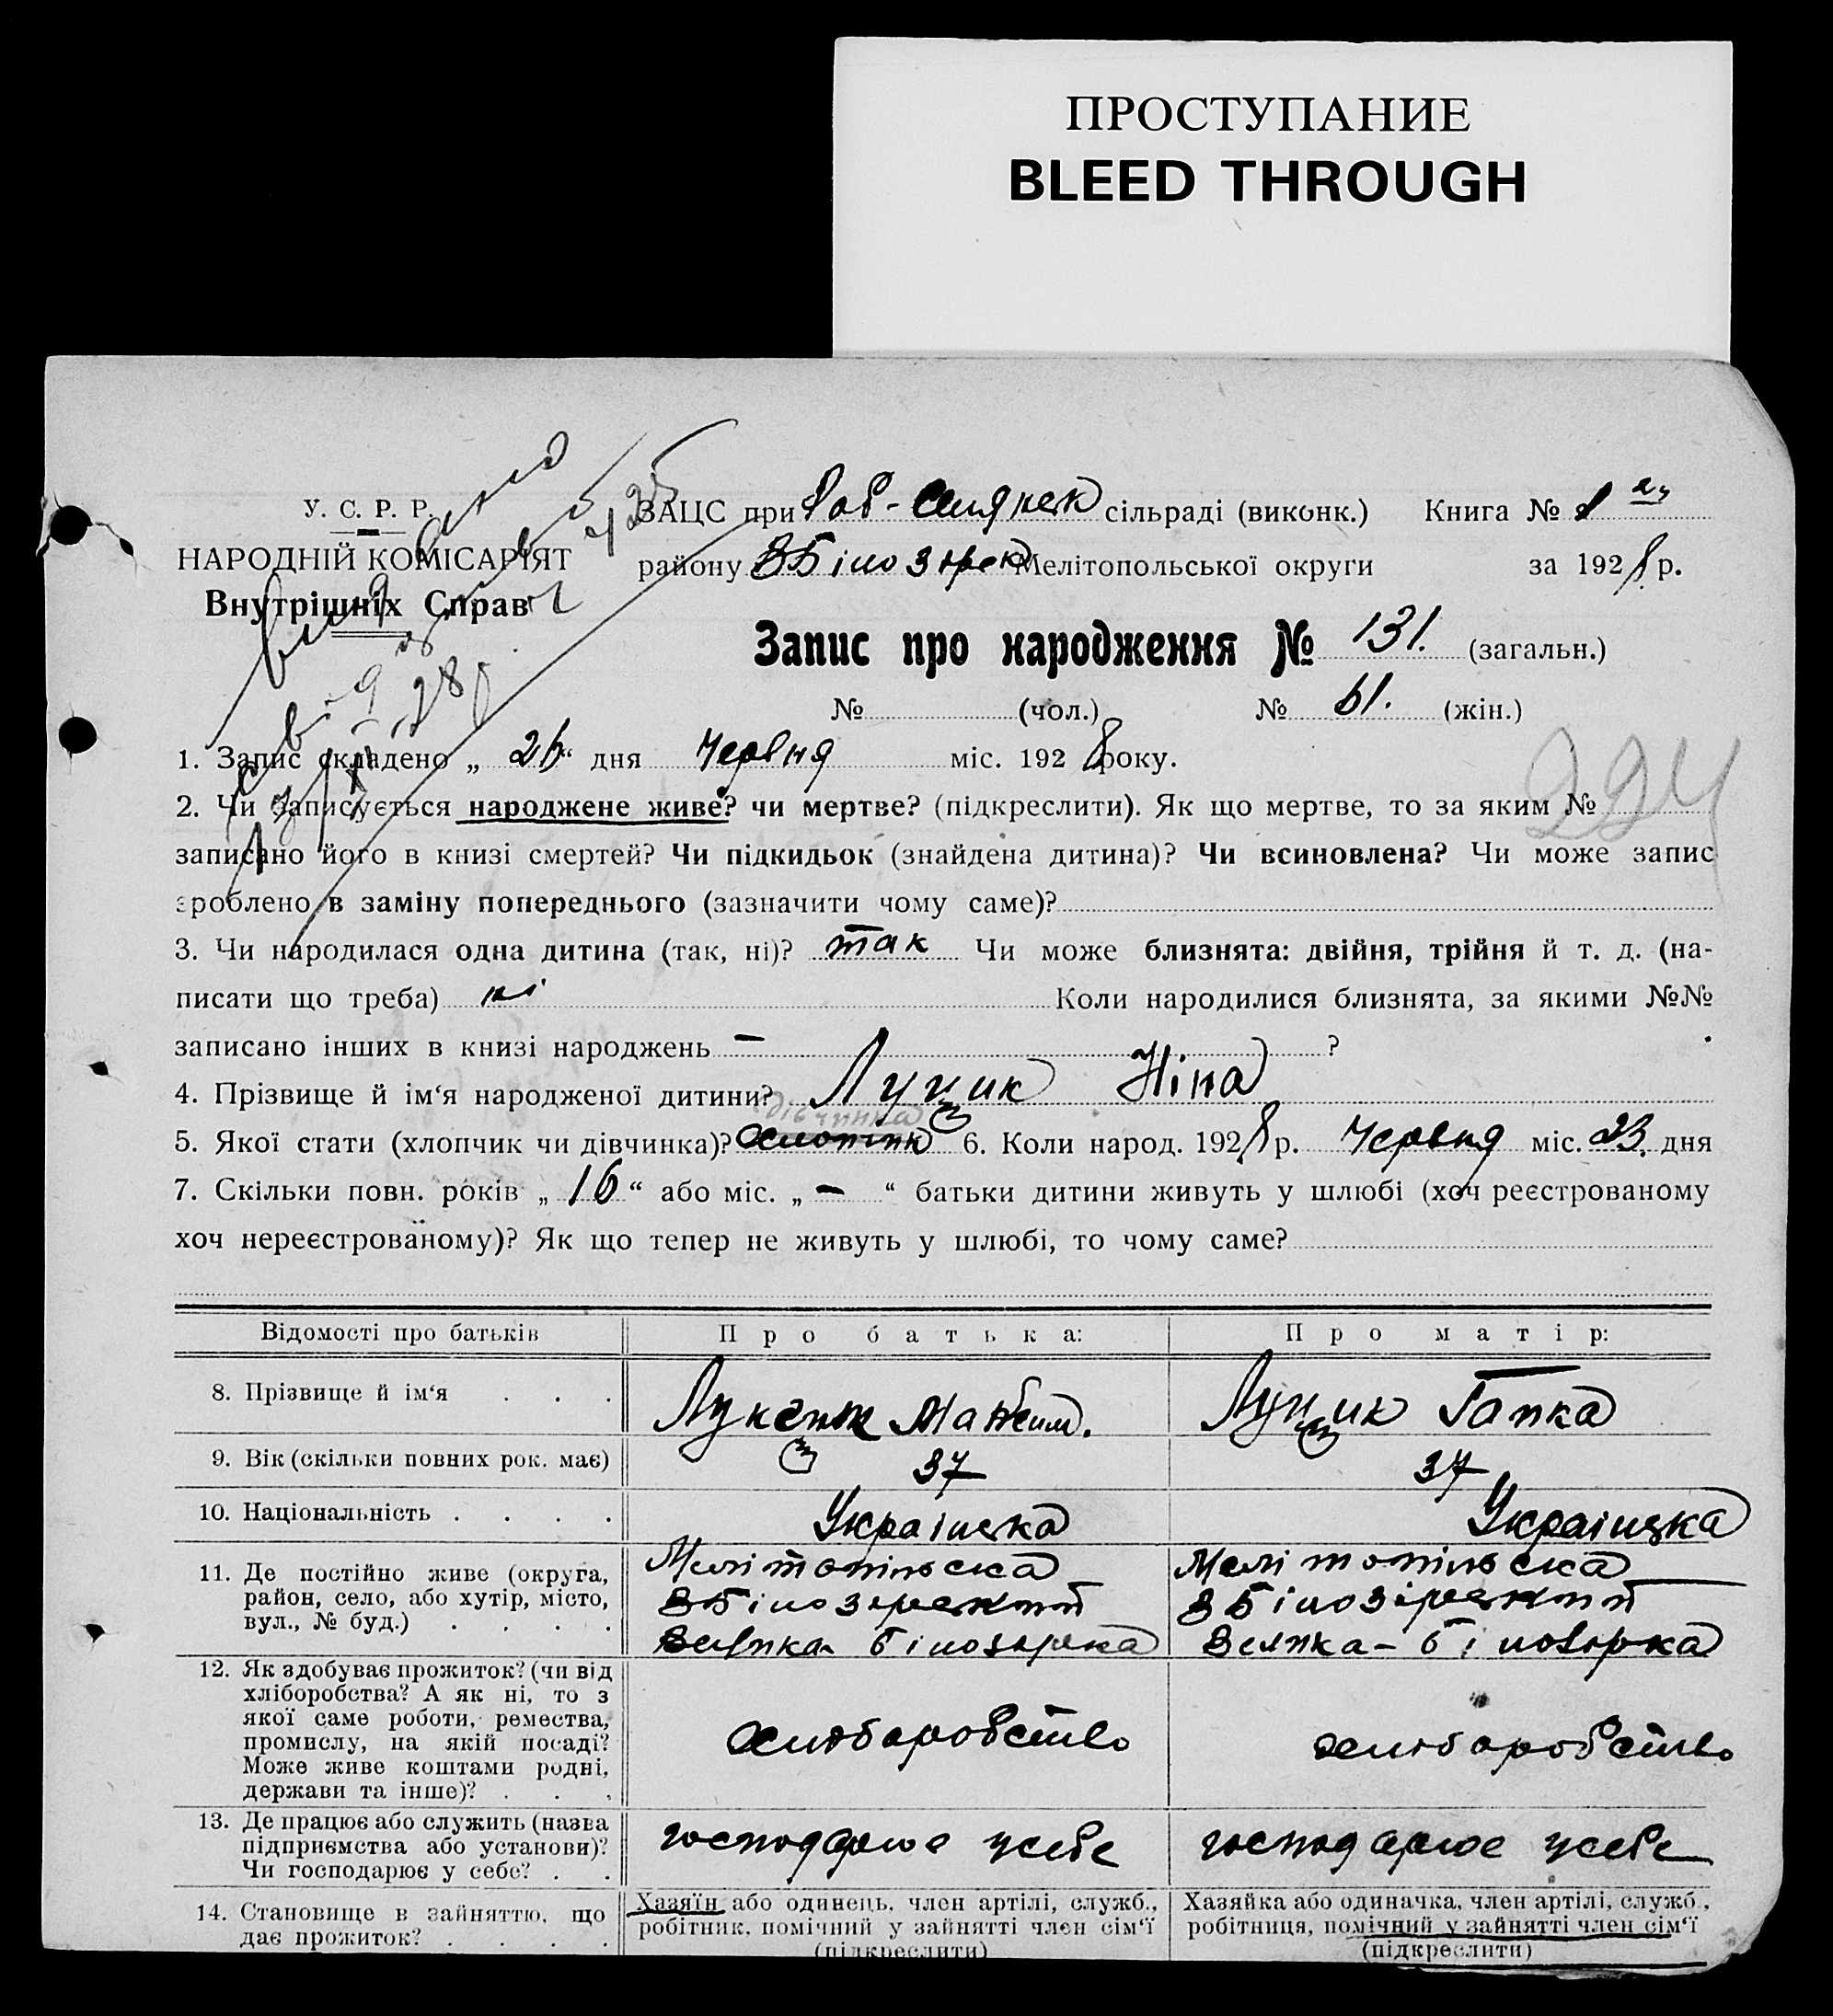 ПРОСТУПАНИЕ
BLEED THROUGH
У. С. Р. Р.
НАРОДНІЙ КОМІСАРІЯТ
Внутрішніх Справ
ЗАЦС при сільраді (виконк.) Книга №
району ВБілозірск Мелітопольської округи за 1928 р.
Запис про народження № 131. (загальн.)
№ (чол.) № 61. (жін.)
1. Запис складено „ 26 “ дня Червня міс. 1928 року.
224
2. Чи записується народжене живе? чи мертве? (підкреслити). Як що мертве, то за яким №
записано його в книзі смертей? Чи підкидьок (знайдена дитина)? Чи всиновлена? Чи може запис
зроблено в заміну попереднього (зазначити чому саме)?
3. Чи народилася одна дитина (так, ні)? так Чи може близнята: двійня, трійня й т. д. (на-
писати що треба) ні Коли народилися близнята, за якими №№
записано інших в книзі народжень — ?
4. Прізвище й ім‘я народженої дитини? Луцик Ніна
дівчинка
5. Якої стати (хлопчик чи дівчинка)? хлопчик 6. Коли народ. 1928 р. Червня міс. 23. дня
7. Скільки повн. років „ 16 “ або міс. „ — “ батьки дитини живуть у шлюбі (хоч реєстрованому
хоч нереєстрованому)? Як що тепер не живуть у шлюбі, то чому саме?
Відомості про батьків
Про батька:
Про матір:
8. Прізвище й ім‘я . . .
Максим.
Луцик Гапка
9. Вік (скільки повних рок. має)
37
37
10. Національність . . . .
Українска
Українска
11. Де постійно живе (округа,
район, село, або хутір, місто,
вул., № буд.) . . . .
Мелітопільска
ВБілозірский
Велика Білозірка
Мелітопільска
ВБілозірский
Велика - Білозірка
12. Як здобуває прожиток? (чи від
хліборобства? А як ні, то з
якої саме роботи, ремества,
промислу, на якій посаді?
Може живе коштами родні,
держави та інше)? . . .
хлюборобство
хлюборобство
13. Де працює або служить (назва
підприємства або установи)?
Чи господарює у себе? . .
господарює усебе
господарює усебе
14. Становище в зайняттю, що
дає прожиток? . . . .
Хазяїн або одинець, член артілі, служб.,
робітник, помічний у зайнятті член сім‘ї
(підкреслити)
Хазяйка або одиначка, член артілі, служб.,
робітниця, помічний у зайнятті член сім‘ї
(підкреслити)